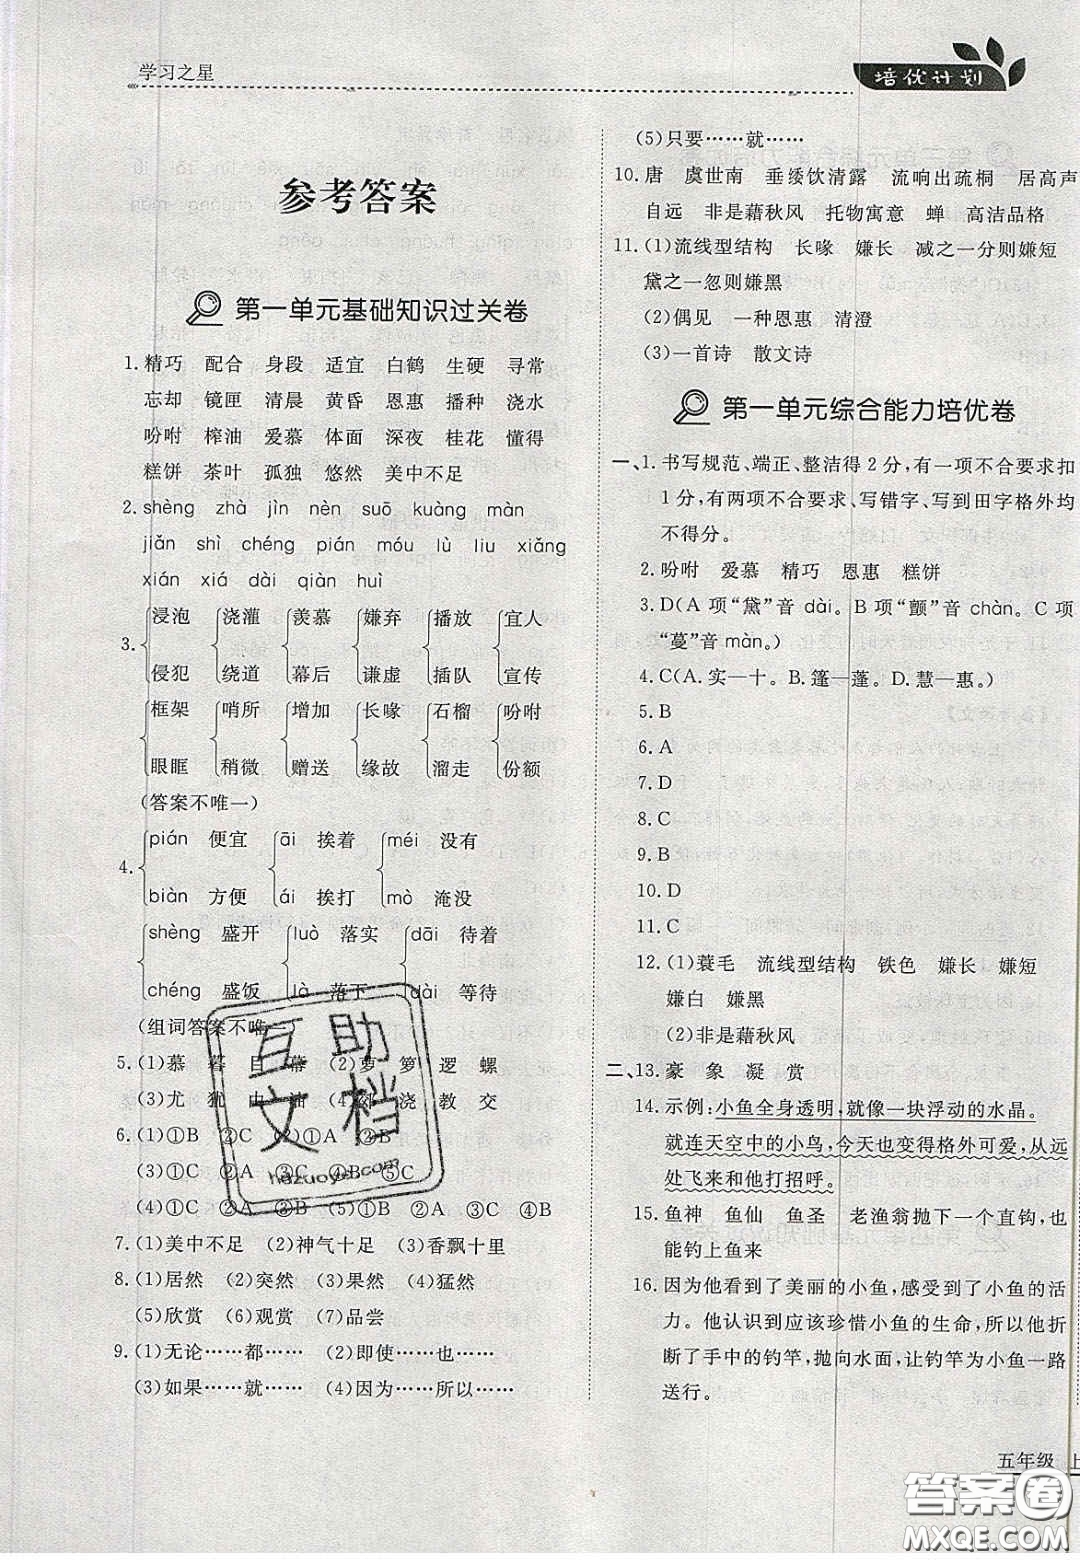 学习之星
培优计划
参考答案
第一单元基础知识过关卷
1.精巧 配合 身段 适宜 白鹤 生硬 寻常
忘却 镜匣 清晨 黄昏 恩惠 播种 浇水
吩咐 榨油 爱慕 体面 深夜 桂花 懂得
糕饼 茶叶 孤独 悠然 美中不足
2.shèng zhà jìn nèn suō kuàng màn
jiǎn shì chéng pián móu lù liu xiǎng
xián xiá dài qiàn huì
3.
浸泡 浇灌 羡慕 嫌弃 播放 宜人
侵犯 绕道 幕后 谦虚 插队 宣传
框架 哨所 增加 长喙 石榴 吩咐
眼眶 稍微 赠送 缘故 溜走 份额
(答案不唯一)
4.
pián 便宜 āi 挨着 méi 没有
biàn 方便 ái 挨打 mò 淹没
shèng 盛开 luò 落实 dāi 待着
chéng 盛饭 là 落下 dài 等待
(组词答案不唯一)
5.(1)慕 暮 目 幕 (2)萝 箩 逻 螺
(3)尤 犹 由 油 (4) 浇 教 交
6.(1)①B ②C (2)①A ②B
(3)①C ②A ③C ④B ⑤C
(4)①C ②A ③B (5)①C ②C ③A ④B
7.(1)美中不足 (2)神气十足 (3)香飘十里
8.(1)居然 (2)突然 (3)果然 (4)猛然
(5)欣赏 (6)观赏 (7)品尝
9.(1)无论……都…… (2)即使……也……
(3)如果……就…… (4)因为……所以……
(5)只要……就……
10.唐 虞世南 垂緌饮清露 流响出疏桐 居高声
自远 非是藉秋风 托物寓意 蝉 高洁品格
11.(1)流线型结构 长喙 嫌长 减之一分则嫌短
黛之一忽则嫌黑
(2)偶见 一种恩惠 清澄
(3)一首诗 散文诗
第一单元综合能力培优卷
一、1.书写规范、端正、整洁得2分,有一项不合要求扣
1分,有两项不合要求、写错字、写到田字格外均
不得分。
2.吩咐 爱慕 精巧 恩惠 糕饼
3.D(A项“黛”音 dài。B项“颤”音 chàn。C项
“蔓”音 màn。)
4.C(A.实—十。B.篷—蓬。D.慧—惠。)
5.B
6.A
7.D
8.C
9.B
10.D
11.C
12.(1)蓑毛 流线型结构 铁色 嫌长 嫌短
嫌白 嫌黑
(2)非是藉秋风
二、13.豪 象 凝 赏
14.示例:小鱼全身透明,就像一块浮动的水晶。
就连天空中的小鸟,今天也变得格外可爱,从远
处飞来和他打招呼。
15.鱼神 鱼仙 鱼圣 老渔翁抛下一个直钩,也
能钓上鱼来
16.因为他看到了美丽的小鱼,感受到了小鱼的活
力。他认识到应该珍惜小鱼的生命,所以他折
断了手中的钓竿,抛向水面,让钓竿为小鱼一路
送行。
五年级 上
互助
文档
hazuoye.com
答案卷
MXQE.COM